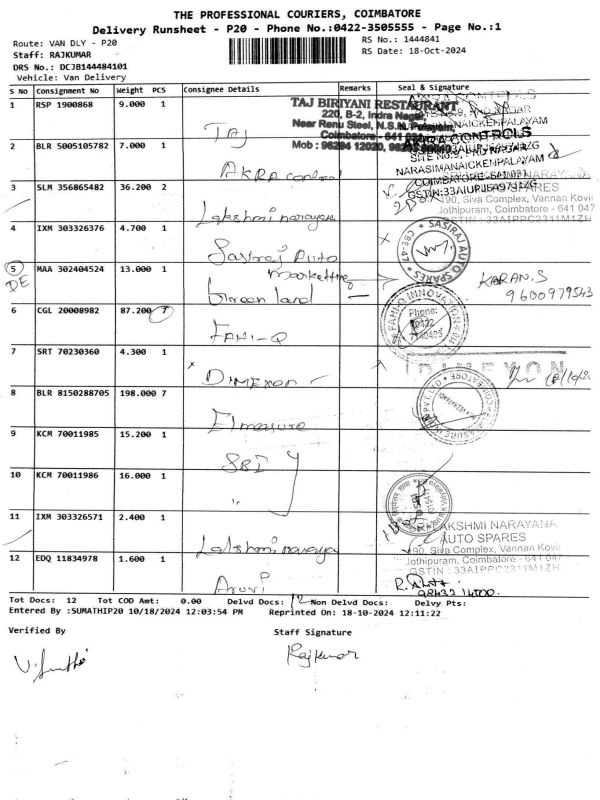 THE PROFESSIONAL COURIERS, COIMBATORE
Delivery Runsheet - P20 - Phone No.:0422-3505555 - Page No.:1
Route: VAN DLY - P20 RS No.: 1444841
Staff: RAJKUMAR RS Date: 18-Oct-2024
DRS No.: DCJB144484101
Vehicle: Van Delivery
S No Consignment No Weight PCS Consignee Details Remarks Seal & Signature
1 RSP 1900868 9.000 1 TAJ
TAJ BIRIYANI RESTAURANT
220, B-2, Indra Nagar
Near Renu Steel, N.S.M. Palayam,
Coimbatore - 641
Mob :
2 BLR 5005105782 7.000 1 AKRA control
AKRA CONTROLS
SITE No.9,
NARASIMANAICKENPALAYAM
COIMBATORE-641031
GSTIN:33AIUPJ6497J1ZG
3 SLM 356865482 36.200 2 Lakshmi narayan
SPARES
190, Siva Complex, Vannan Kovil
Jothipuram, Coimbatore - 641 047
GSTIN : 33AIPPC2311M1ZH
4 IXM 303326376 4.700 1 Sasiraj Auto
marketting
SASIRAJ AUTO SPARES
CBE-47
5 MAA 302404524 13.000 1 Green land
DE
KARAN.S
9600979543
6 CGL 20008982 87.200 7 FAHI-Q
FAHI-Q INNOVATION
Phone:
0422
7 SRT 70230360 4.300 1 DIMEXON
DIMEXON
8 BLR 8150288705 198.000 7 Elmasure
9 KCM 70011985 15.200 1 SBI
10 KCM 70011986 16.000 1 "
11 IXM 303326571 2.400 1 Lakshmi narayan
SRI LAKSHMI NARAYANA
AUTO SPARES
190, Siva Complex, Vannan Kovil
Jothipuram, Coimbatore - 641 047
GSTIN : 33AIPPC2311M1ZH
12 EDQ 11834978 1.600 1 Aruvi
Tot Docs: 12 Tot COD Amt: 0.00 Delvd Docs: 12 Non Delvd Docs: Delvy Pts:
Entered By :SUMATHIP20 10/18/2024 12:03:54 PM Reprinted On: 18-10-2024 12:11:22
Verified By Staff Signature
Rajkumar